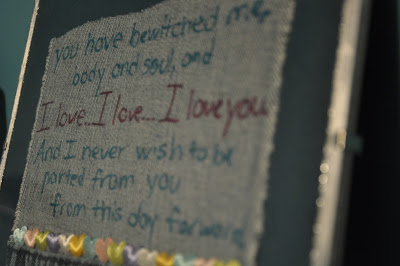 you have bewitched me,
body and soul, and
I love...I love....I love you
And I never wish to be
parted from you
from this day forward